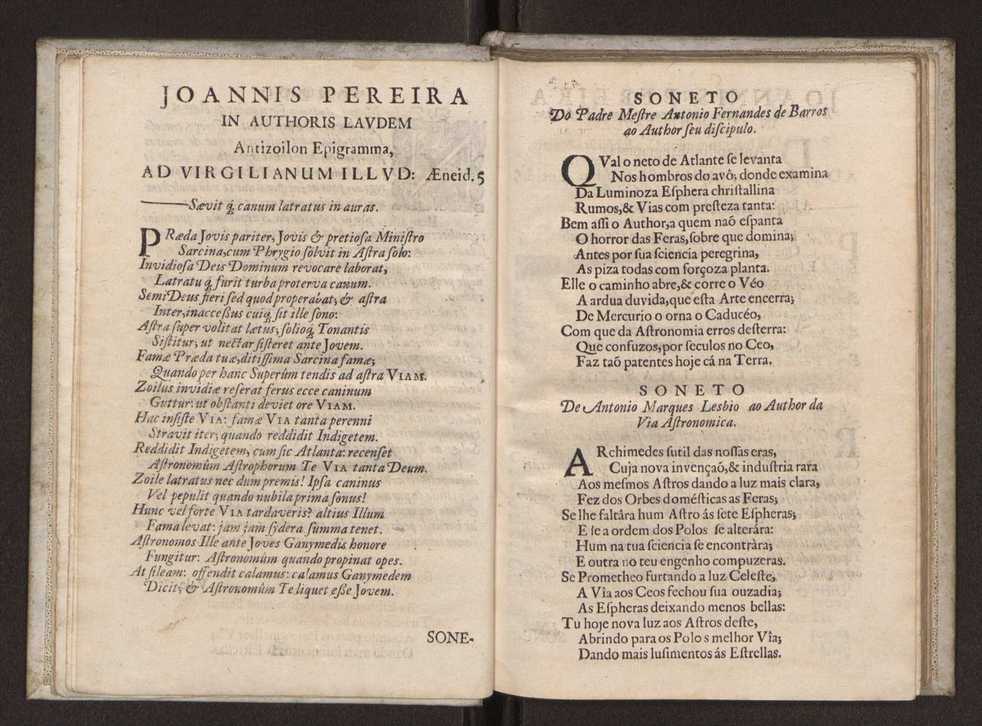 JOANNIS PEREIRA
IN AUTHORIS LAVDEM
Antizoilon Epigramma,
AD VIRGILIANUM ILLVD: Æneid. 5
——Sævit q́; canum latratus in auras.
PRæda Jovis pariter, Jovis & pretiosa Ministro
Sarcina, cum Phrygio solvit in Astra solo:
Invidiosa Deis Dominum revocare laborat,
Latratu q́; furit turba proterva canum.
SemiDeus fieri sed quod properabat, & astra
Inter, inaccessus cuiq́; sit ille sono:
Astra super volitat lætus, solioq́; Tonantis
Sistitur, ut nectar sisteret ante Jovem.
Famæ Præda tuæ, ditissima Sarcina famæ;
Quando per hanc Superûm tendis ad astra VIAM.
Zoilus invidiæ reserat ferus ecce caninum
Guttur: ut obstanti deviet ore VIAM.
Hac insiste VIA: famæ VIA tanta perenni
Stravit iter, quando reddidit Indigetem.
Reddidit Indigetem, cum sic Atlanta: recenset
Astronomûm Astrophorum Te VIA tanta Deum.
Zoile latratus nec dum premis! Ipsa caninus
Vel pepulit quando nubila prima sonus!
Hunc vel forte VIA tardaveris? altius Illum
Fama levat: jam jam sydera summa tenet.
Astronomos Ille ante Joves Ganymedis honore
Fungitur: Astronomûm quando propinat opes.
At sileam: offendit calamus: calamus Ganymedem
Dicit, & Astronomûm Te liquet esse Jovem.
SONE-
SONETO
Do Padre Mestre Antonio Fernandes de Barros
ao Author seu discipulo.
QVal o neto de Atlante se levanta
Nos hombros do avô; donde examina
Da Luminoza Esphera christallina
Rumos, & Vias com presteza tanta:
Bem assi o Author, a quem naõ espanta
O horror das Feras, sobre que domina;
Antes por sua sciencia peregrina,
As piza todas com forçoza planta.
Elle o caminho abre, & corre o Véo
A ardua duvida, que esta Arte encerra;
De Mercurio o orna o Caducéo,
Com que da Astronomia erros desterra:
Que confuzos, por seculos no Ceo,
Faz taõ patentes hoje cá na Terra.
SONETO
De Antonio Marques Lesbio ao Author da
Via Astronomica.
ARchimedes sutil das nossas eras,
Cuja nova invençaõ, & industria rara
Aos mesmos Astros dando a luz mais clara,
Fez dos Orbes domésticas as Feras;
Se lhe faltâra hum Astro ás sete Espheras;
E se a ordem dos Polos se alterára:
Hum na tua sciencia se encontràra;
E outra no teu engenho compuzeras.
Se Prometheo furtando a luz Celeste,
A Via aos Ceos fechou sua ouzadia;
As Espheras deixando menos bellas:
Tu hoje nova luz aos Astros deste,
Abrindo para os Polo s melhor Vîa;
Dando mais lusimentos ás Estrellas.